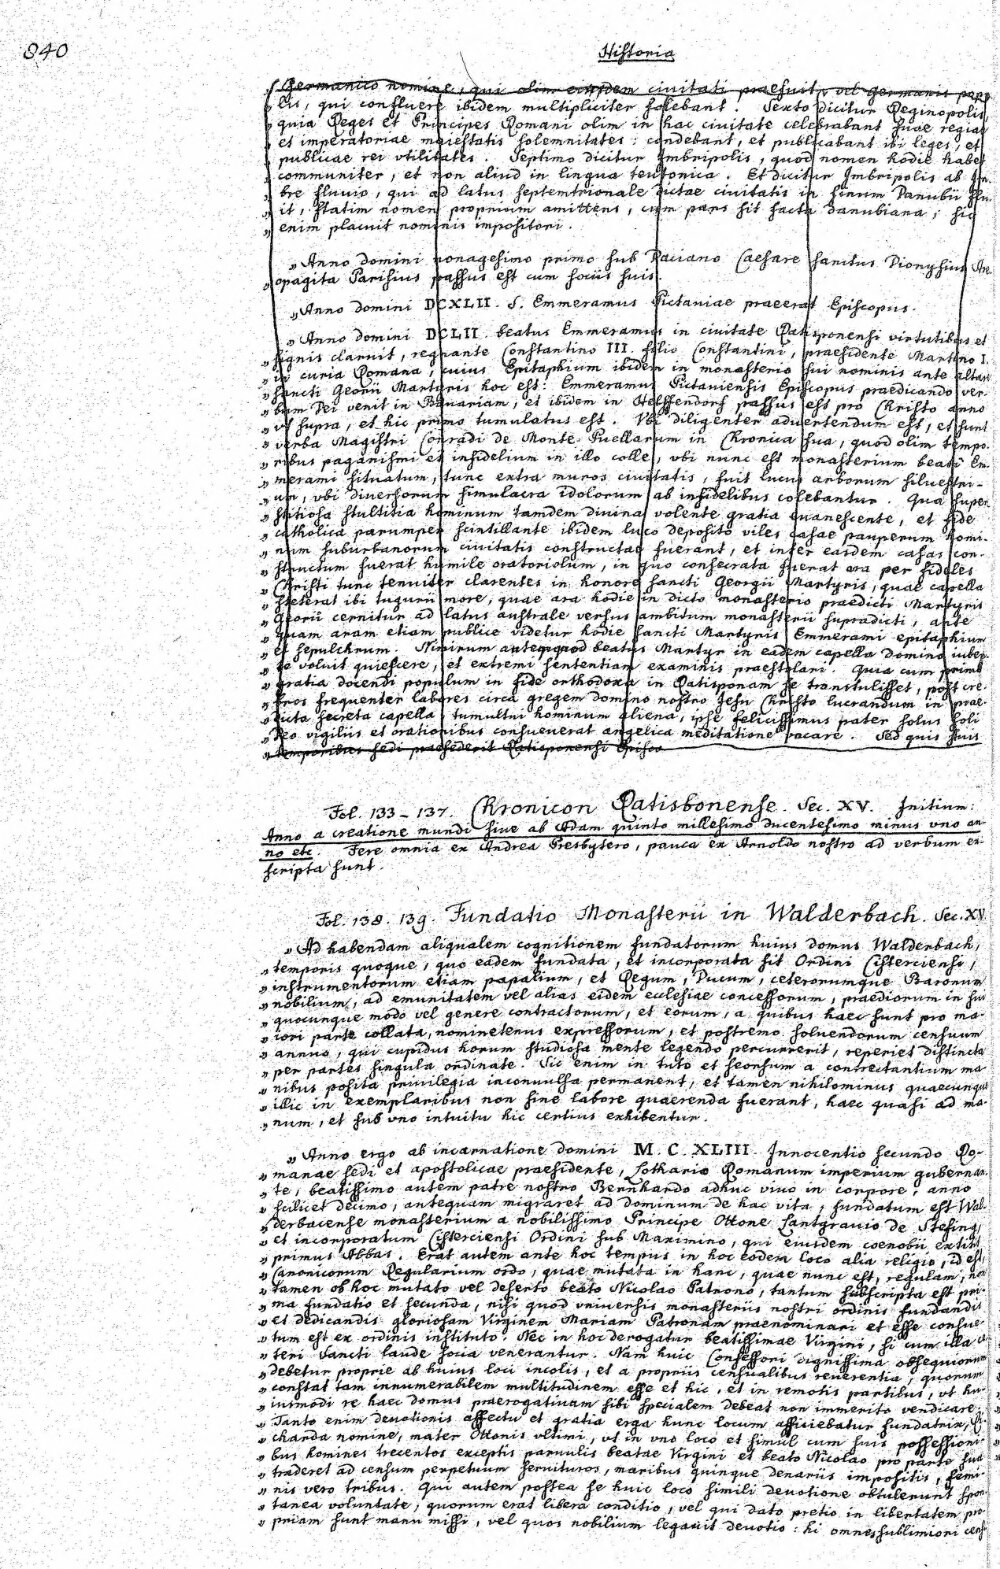 840
Historia
Germanico nomine, qui olim eiusdem civitati praefuit, vel germanis popu
lis, qui confluere ibidem multipliciter solebant. Sexto dicitur Reginopolis,
quia Reges et Principes Romani olim in hac civitate celebrabant suae regiae
et imperatoriae maiestatis solemnitates: condebant, et publicabant ibi leges, et
publicae rei vtilitates. Septimo dicitur Imbripolis, quod nomen hodie habet
communiter, et non aliud in lingua teutonica. Et dicitur Imbripolis ab Im-
bre fluvio, qui ad latus septemtrionale dictae civitatis in sinum Danubii flu
it, statim nomen proprium amittens, cum pars sit facta danubiana; sic
enim placuit nominis impositori.
„Anno domini nonagesimo primo sub Daciano Caesare sanctus Dionysius Are
opagita Parisius passus est cum sociis suis.
„Anno domini DCXLII. S. Emmeramus Pictaniae praeerat Episcopus.
„Anno domini DCLII. beatus Emmeramus in civitate Ratisponensi virtutibus et
signis claruit, regnante Constantino III. filio Constantini, praesidente Martino I.
in curia Romana, cuius Epitaphium ibidem in monasterio sui nominis ante altare
sancti Georii Martyris hoc est: Emmeramus Pictaviensis Episcopus praedicando ver-
bum Dei venit in Bavariam, et ibidem in Helffendorf passus est pro Christo anno
vt supra, et hic primo tumulatus est. Vbi diligenter advertendum est, et sunt
verba Magistri Conradi de Monte Puellarum in Chronica sua, quod olim tempo
ribus paganismi et infidelium in illo colle, vbi nunc est monasterium beati Em
merami situatum, tunc extra muros civitatis, fuit lucus arborum silvestri-
um, vbi diversorum simulacra idolorum ab infidelibus colebantur. Qua super
stitiosa stultitia hominum tamdem divina volente gratia evanescente, et fide
catholica parumper scintillante ibidem luco deposito viles casae pauperum homi-
num suburbanorum civitatis constructae fuerant, et inter easdem casas con-
structum fuerat humile oratoriolum, in quo consecrata fuerat ara per fideles
Christi tunc tenuiter clarentes in honore sancti Georgii Martyris, quae capella
steterat ibi tugurii more, quae ara hodie in dicto monasterio praedicti Martyris
Georii cernitur ad latus australe versus ambitum monasterii supradicti, ante
quam aram etiam publice videtur hodie sancti Martyris Emmerami epitaphium
et sepulchrum. Nimirum autem quod beatus Martyr in eadem capella domino iuben
te voluit quiescere, et extremi sententiam examinis praestolari. Quia cum primo
gratia docendi populum in fide orthodoxa in Ratisponam se transtulisset, post cre-
bros frequenter labores circa gregem domino nostro Jesu Christo lucrandum in prae-
dicta secreta capella tumultui hominum aliena, ipse felicissimus pater solus soli
Deo vigiliis et orationibus consueverat angelica meditatione vacare. Sed quis suis
temporibus sedi praesederit Ratisponensi Episco
Fol. 133-137. Chronicon Ratisbonense. Sec. XV. Initium:
Anno a creatione mundi sive ab Adam quinto millesimo ducentesimo minus vno an-
no etc. Fere omnia ex Andrea Presbytero, pauca ex Arnoldo nostro ad verbum ex-
scripta sunt.
Fol. 138. 139. Fundatio Monasterii in Walderbach. Sec. XV.
„Ad habendam aliqualem cognitionem fundatorum huius domus Walderbach,
„temporis quoque, quo eadem fundata, et incorporata sit Ordini Cisterciensi,
„instrumentorum etiam papalium, et Regum, Ducum, ceterorumque Baronum
„nobilium, ad emunitatem vel alias eidem ecclesiae concessorum, praediorum in sui
„quocunque modo vel genere contractorum, et eorum, a quibus haec sunt pro ma-
„iori parte collata, nominetenus expressorum, et postremo solvendorum censuum
„annuo, qui cupidus horum studiosa mente legendo percurrerit, reperiet distincta
„per partes singula ordinate. Sic enim in tuto et seorsum a contrectantium ma
„nibus posita privilegia inconvulsa permanent, et tamen nihilominus quaecunque
„illic in exemplaribus non sine labore quaerenda fuerant, haec quasi ad ma-
„num, et sub vno intuitu hic certius exhibentur.
„Anno ergo ab incarnatione domini M. C. XLIII. Innocentio secundo Ro-
„manae sedi et apostolicae praesidente, Lothario Romanum imperium gubernan
„te, beatissimo autem patre nostro Bernhardo adhuc vivo in corpore, anno
„scilicet decimo, antequam migraret ad dominum de hac vita, fundatum est Wal-
„derbacense monasterium a nobilissimo Principe Ottone Lantgravio de Stefing
„et incorporatum Cisterciensi Ordini sub Maximino, qui eiusdem coenobii extitit
„primus Abbas. Erat autem ante hoc tempus in hoc eodem loco alia religio, id est,
„Canonicorum Regularium ordo, quae mutata in hanc, quae nunc est, regulam, non
„tamen ob hoc mutato vel deserto beato Nicolao Patrono, tantum subscripta est pri-
„ma fundatio et secunda, nisi quod universis monasteriis nostri ordinis fundandis
„et dedicandis gloriosam Virginem Mariam Patronam praenominari et esse consue
„tum est ex ordinis instituto. Nec in hoc derogatur beatissimae Virgini, si cum illa ce
„teri Sancti laude socia venerantur. Nam huic Confessori dignissima obsequiorum
„debetur proprie ab huius loci incolis, et a propriis censualibus reverentia, quorum
„constat tam innumerabilem multitudinem esse et hic, et in remotis partibus, vt hu-
„iusmodi re haec domus praerogativam sibi specialem debeat non immerito vendicare.
„Tanto enim devotionis affectu et gratia erga hunc locum afficiebatur fundatrix, Ri-
„charda nomine, mater Ottonis vltimi, vt in vno loco et simul cum suis possessioni-
„bus homines trecentos exceptis parvulis beatae Virgini et beato Nicolao pro parte sua
„traderet ad censum perpetuum servituros, maribus quinque denariis impositis, femi-
„nis vero tribus. Qui autem postea se huic loco simili devotione obtulerunt spon-
„tanea voluntate, quorum erat libera conditio, vel qui dato pretio in libertatem pro-
„priam sunt manu missi, vel quos nobilium legavit devotio: hi omnes sublimiori cens